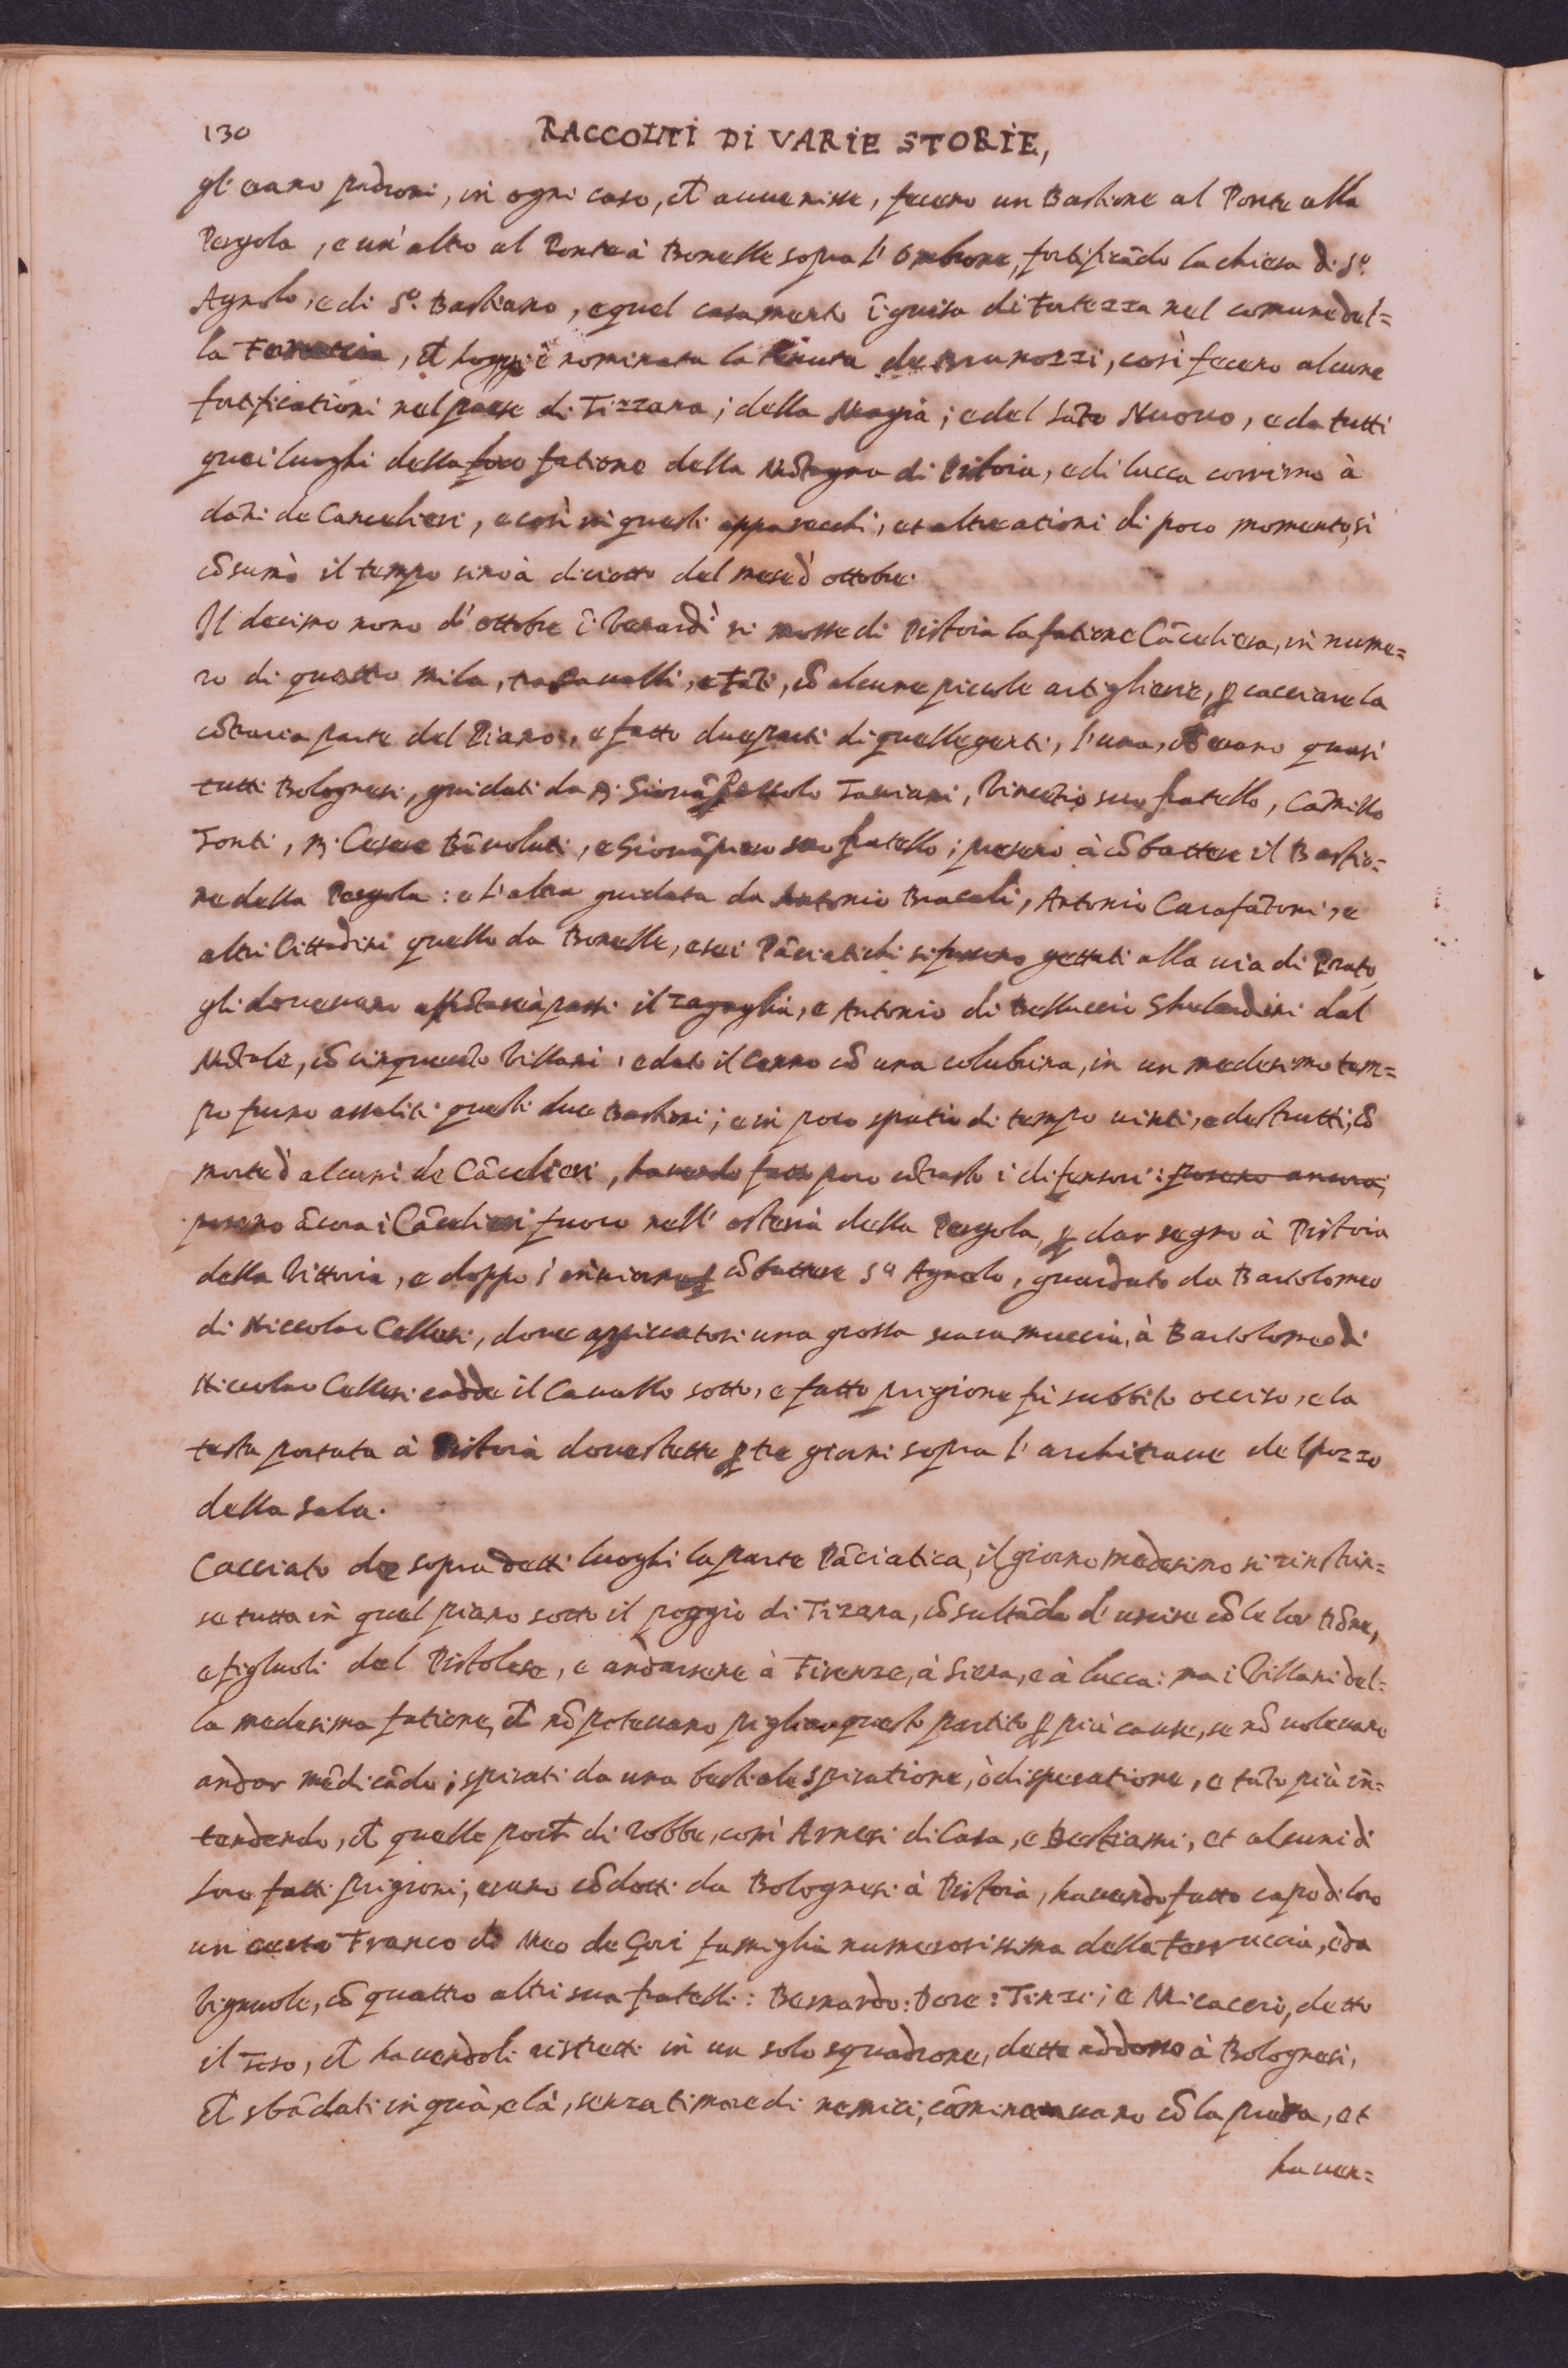 130
RACCOLTI DI VARIE STORIE,
gli erano padroni, in ogni caso, ch̃ auuenisse, fecero un Bastione al Ponte alla
Pergola, e un'altro al Ponte à Bonelle sopra l'Ombrone, fortificãdo la chiesa di S.º
Agnolo, e di S.º Bastiano, e quel casamento ĩ guisa di Fortezza nel comune del=
la Ferruccia, ch̃ hoggi è nominata la Tenuta de Brunozzi, così fecero alcune
fortificationi nel paese di Tizzana; della Magia; e del Sãto Nuouo, e da tutti
quei luoghi della fatione della Mõtagna di Pistoia, e di lucca corrirno à
dãni de Cancelieri, e così in questi apparecchi, et altre ationi di poco momento, si
cõsumò il tempo sino à diciotto del mese d' ottobre.
Il decimo nono d' ottobre ĩ Venardì si mosse di Pistoia la fatione Cãceliera, in nume=
ro di quattro mila, tra Caualli, e Fãti, cõ alcune piccole artiglierie, ꝑ cacciare la
cõtraria parte del Piano, e fatto due parti di quelle genti, l'una, ch̃ erano quasi
tutti Bolognesi, guidati da M. Giouã Paolo Tauiani, Vincẽtio suo fratello, Cãmillo
Fonti, M. Cesare Bẽuoluti, e Giouãpiero suo fratello; presero à cõbattere il Bastio=
ne della Pergola: e l'altra guidata da Antonio Bracali, Antonio Carafãtoni, e
altri Cittadini quello da Bonelle, e se i Pãciatichi si fussero gettati alla uia di Prato,
gli doueuano à passi il zagaglia, e Antonio di Belluccio Ghelardini dal
Mõtale, cõ cinquecẽto Villani, e dato il cenno cõ una colubrina, in un medesimo tem=
po furno assaliti questi due Bastioni; e in poco spatio di tempo uinti, e destrutti, cõ
morte d' alcuni de Cãcelieri, hauendo fatto poco cõtrasto i difensori: posero ancora,
posero ãcora i Cãcelieri fuoco nell' osteria della Pergola, ꝑ dar segno à Pistoia
della Vittoria, e doppo s' inuiorno ꝑ cõbattere S.º Agnolo, guardato da Bartolomeo
di Niccolao Cellesi, doue appiccatosi una grossa scaramuccia, à Bartolomeo di
Niccolao Cellesi cadde il Cauallo sotto, e fatto prigione fù subbito occiso, e la
testa portata à Pistoia doue stette ꝑ tre giorni sopra l' architraue del pozzo
della Sala.
Cacciato de sopra detti luoghi la parte Pãciatica, il giorno medesimo si rinstrin=
se tutta in quel piano sotto il poggio di Tizana, cõsultãdo d' uscire cõ le lor dõne,
e figluoli dal Pistolese, e andarsene à Firenze, à Siena, e à lucca: ma i Villani del=
la medesima fatione, ch̃ nõ poteuano pigliar questo partito ꝑ più cause, se nõ uoleuano
andar mẽdicãdo; spirati da una bestiale spiratione, ò disperatione, e tãto più ĩn=
tendendo, ch̃ quelle di robbe, comi Arnesi di Casa, e Bestiami, et alcuni di
loro fatti prigioni, erano cõdotti da Bolognesi à Pistoia, hauendo fatto capo di loro
un certo Franco di Meo de Gori famiglia numerosissima della Ferruccia, e da
Vignuole, cõ quattro altri sua fratelli: Bernardo: Dore: Tinzi; e Micaceio, detto
il Toso, ch̃ hauendoli ristretti in un solo squadrone, dette addosso à Bolognesi,
ch̃ sbãdati in quà, e là, senza timore di nemici, cãminauano cõ la preda, et
hauen=